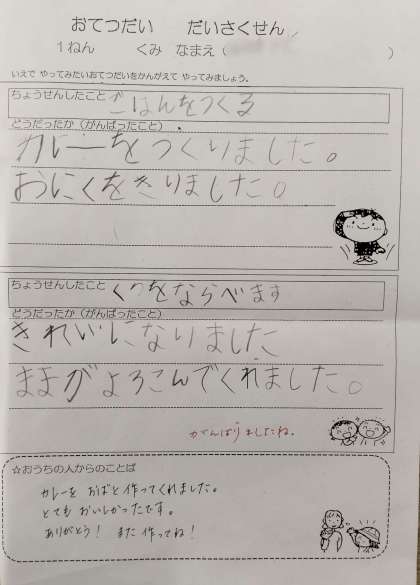 おてつだい　だいさくせん
1ねん　くみ　なまえ（　）
いえで やってみたいおてつだいをかんがえて やってみましょう。
ちょうせんしたこと ごはんをつくる
どうだったか（がんばったこと）
カレーをつくりました。
おにくをきりました。
ちょうせんしたこと くつをならべます
どうだったか（がんばったこと）
きれいになりました
ままがよろこんでくれました。
がんばりましたね。
☆おうちの人からのことば
カレーを おばと作ってくれました。
とても おいしかったです。
ありがとう！ また 作ってね！